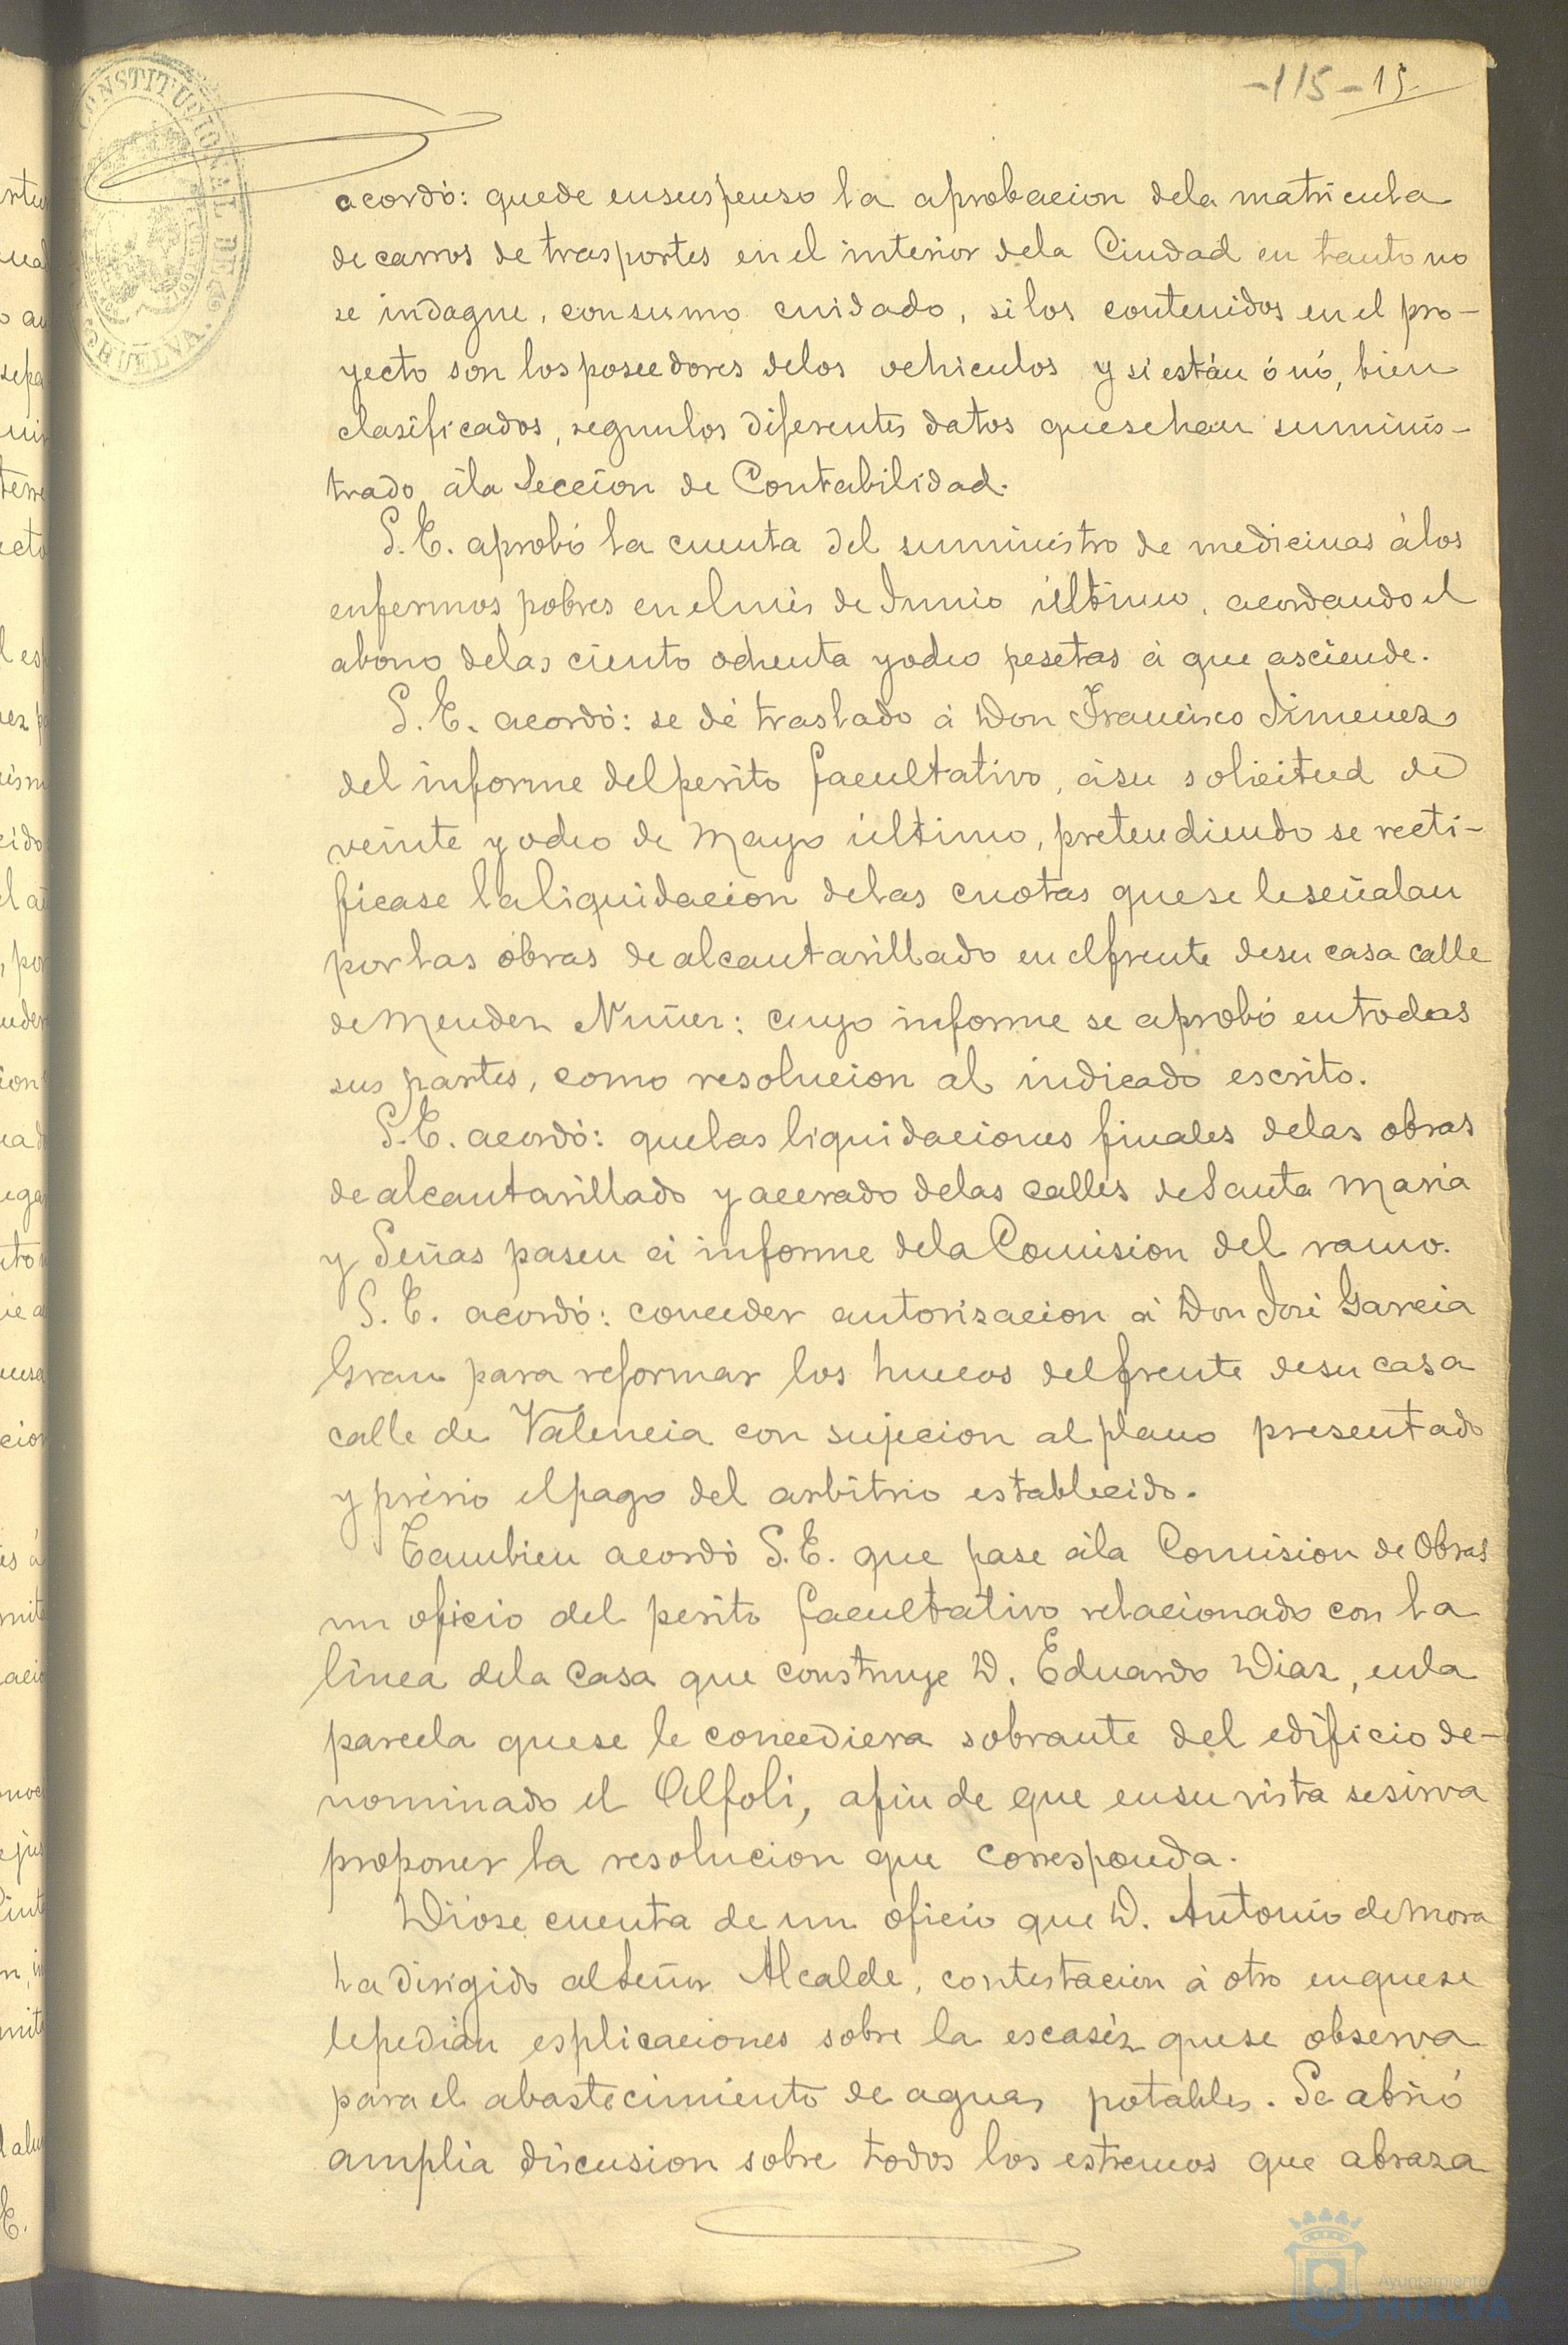 -115- 15.
CONSTITUCIONAL DE
HUELVA.
acordó: quede en suspenso la aprobacion de la matricula
de carros de trasportes en el interior de la Ciudad en tanto no
se indague, con sumo cuidado, si los contenidos en el pro-
yecto son los poseedores de los vehiculos y si están ó nó, bien
clasificados, segun los diferentes datos que se han suminis-
trado á la Seccion de Contabilidad.
S. E. aprobó la cuenta del suministro de medicinas á los
enfermos pobres en el mes de Junio último, acordando el
abono de las ciento ochenta y ocho pesetas á que asciende.
S. E. acordó: se dé traslado á Don Francisco Jimenez
del informe del perito facultativo, á su solicitud de
veinte y ocho de Mayo último, pretendiendo se recti-
ficase la liquidacion de las cuotas que se le señalan
por las obras de alcantarillado en el frente de su casa calle
de Mendez Nuñez: cuyo informe se aprobó en todas
sus partes, como resolucion al indicado escrito.
S. E. acordó: que las liquidaciones finales de las obras
de alcantarillado y acerado de las calles de Santa Maria
y Señas pasen á informe de la Comision del ramo.
S. E. acordó: conceder autorizacion á Don José Garcia
Grau para reformar los huecos del frente de su casa
calle de Valencia con sujecion al plano presentado
y prévio el pago del arbitrio establecido.
Tambien acordó S. E. que pase á la Comision de Obras
un oficio del perito facultativo relacionado con la
línea de la casa que construye D. Eduardo Diaz, en la
parcela que se le concediera sobrante del edificio de-
nominado el Alfoli, a fin de que en su vista se sirva
proponer la resolucion que corresponda.
Dióse cuenta de un oficio que D. Antonio de Mora
ha dirigido al Señor Alcalde, contestacion á otro en que se
le pedian esplicaciones sobre la escaséz que se observa
para el abastecimiento de aguas potables. Se abrió
amplia discusion sobre todos los estremos que abraza
Ayuntamiento de
HUELVA